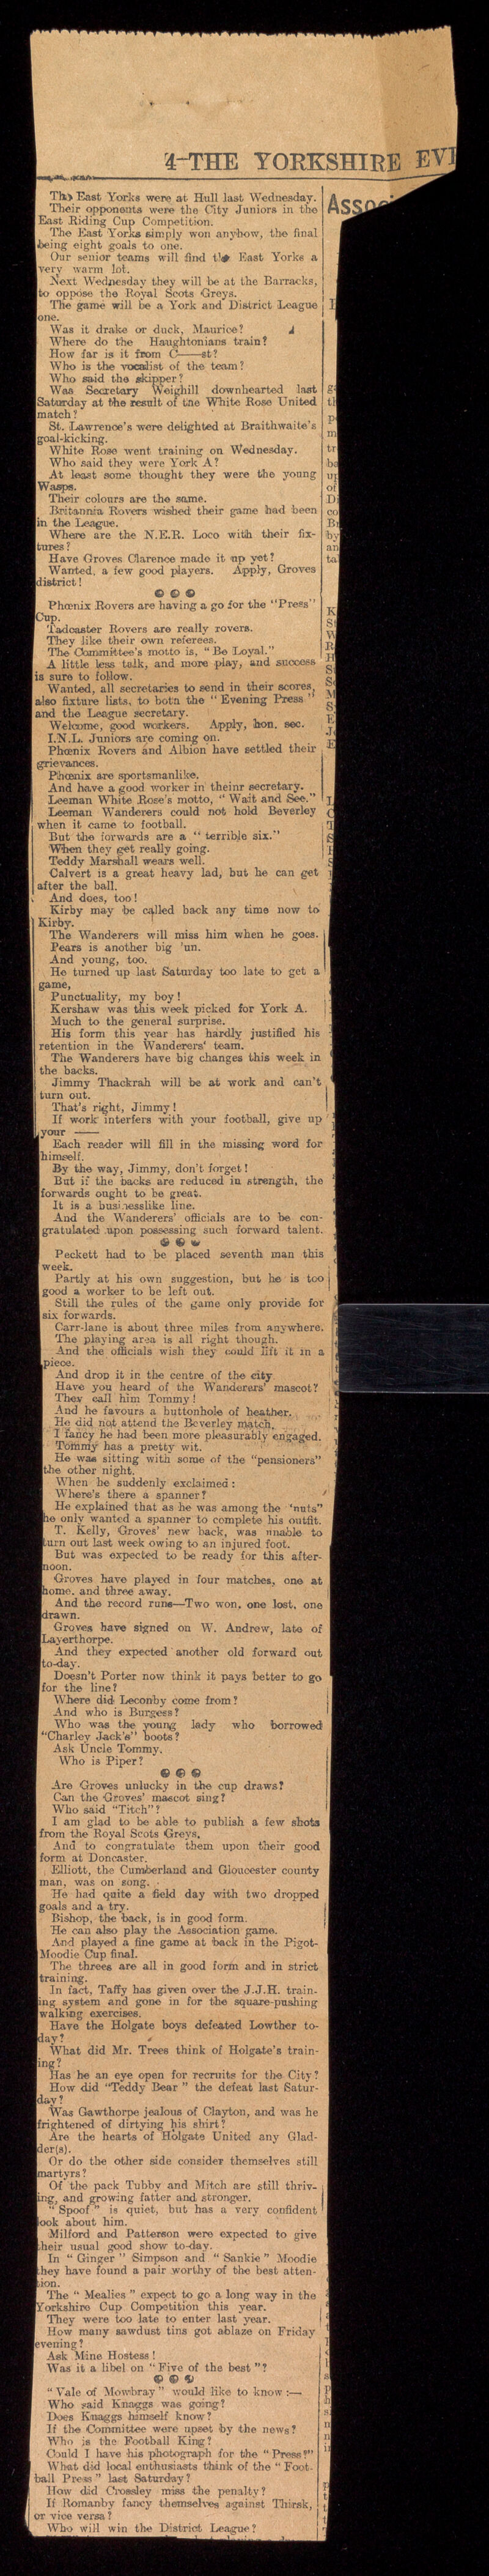 4-THE YORKSHIRE EVE
Assoc
The East Yorks were at Hull last Wednesday.
Their opponents were the City Juniors in the
East Riding Cup Competition.
The East Yorks simply won anyhow, the final
being eight goals to one.
Our senior teams will find the East Yorks a
very warm lot.
Next Wednesday they will be at the Barracks,
to oppose the Royal Scots Greys.
The game will be a York and District League
one.
Was it drake or duck, Maurice?
Where do the Haughtonians train?
How far is it from C——st?
Who is the vocalist of the team?
Who said the skipper?
Was Secretary Weighill downhearted last
Saturday at the result of the White Rose United
match?
St. Lawrence's were delighted at Braithwaite's
goal-kicking.
White Rose went training on Wednesday.
Who said they were York A?
At least some thought they were the young
Wasps.
Their colours are the same.
Britannia Rovers wished their game had been
in the League.
Where are the N.E.R. Loco with their fix-
tures?
Have Groves Clarence made it up yet?
Wanted, a few good players. Apply, Groves
district!
Phœnix Rovers are having a go for the "Press"
Cup.
Tadcaster Rovers are really rovers.
They like their own referees.
The Committee's motto is, "Be Loyal."
A little less talk, and more play, and success
is sure to follow.
Wanted, all secretaries to send in their scores,
also fixture lists, to both the "Evening Press"
and the League secretary.
Welcome, good workers. Apply, hon. sec.
I.N.L. Juniors are coming on.
Phœnix Rovers and Albion have settled their
grievances.
Phœnix are sportsmanlike.
And have a good worker in theinr secretary.
Leeman White Rose's motto, "Wait and See."
Leeman Wanderers could not hold Beverley
when it came to football.
But the forwards are a "terrible six."
When they get really going.
Teddy Marshall wears well.
Calvert is a great heavy lad, but he can get
after the ball.
And does, too!
Kirby may be called back any time now to
Kirby.
The Wanderers will miss him when he goes.
Pears is another big 'un.
And young, too.
He turned up last Saturday too late to get a
game,
Punctuality, my boy!
Kershaw was this week picked for York A.
Much to the general surprise.
His form this year has hardly justified his
retention in the Wanderers' team.
The Wanderers have big changes this week in
the backs.
Jimmy Thackrah will be at work and can't
turn out.
That's right, Jimmy!
If work interfers with your football, give up
your ——
Each reader will fill in the missing word for
himself.
By the way, Jimmy, don't forget!
But if the backs are reduced in strength, the
forwards ought to be great.
It is a businesslike line.
And the Wanderers' officials are to be con-
gratulated upon possessing such forward talent.
Peckett had to be placed seventh man this
week.
Partly at his own suggestion, but he is too
good a worker to be left out.
Still the rules of the game only provide for
six forwards.
Carr-lane is about three miles from anywhere.
The playing area is all right though.
And the officials wish they could lift it in a
piece.
And drop it in the centre of the city.
Have you heard of the Wanderers' mascot?
They call him Tommy!
And he favours a buttonhole of heather.
He did not attend the Beverley match.
I fancy he had been more pleasurably engaged.
Tommy has a pretty wit.
He was sitting with some of the "pensioners"
the other night.
When he suddenly exclaimed:
Where's there a spanner?
He explained that as he was among the 'nuts"
he only wanted a spanner to complete his outfit.
T. Kelly, Groves' new back, was unable to
turn out last week owing to an injured foot.
But was expected to be ready for this after-
noon.
Groves have played in four matches, one at
home. and three away.
And the record runs—Two won, one lost, one
drawn.
Groves have signed on W. Andrew, late of
Layerthorpe.
And they expected another old forward out
to-day.
Doesn't Porter now think it pays better to go
for the line?
Where did Leconby come from?
And who is Burgess?
Who was the young lady who borrowed
"Charley Jack's" boots?
Ask Uncle Tommy.
Who is Piper?
Are Groves unlucky in the cup draws?
Can the Groves' mascot sing?
Who said "Titch"?
I am glad to be able to publish a few shots
from the Royal Scots Greys.
And to congratulate them upon their good
form at Doncaster.
Elliott, the Cumberland and Gloucester county
man, was on song.
He had quite a field day with two dropped
goals and a try.
Bishop, the back, is in good form.
He can also play the Association game.
And played a fine game at back in the Pigot-
Moodie Cup final.
The threes are all in good form and in strict
training.
In fact, Taffy has given over the J.J.H. train-
ing system and gone in for the square-pushing
walking exercises.
Have the Holgate boys defeated Lowther to-
day?
What did Mr. Trees think of Holgate's train-
ing?
Has he an eye open for recruits for the City?
How did "Teddy Bear" the defeat last Satur-
day?
Was Gawthorpe jealous of Clayton, and was he
frightened of dirtying his shirt?
Are the hearts of Holgate United any Glad-
der(s).
Or do the other side consider themselves still
martyrs?
Of the pack Tubby and Mitch are still thriv-
ing, and growing fatter and stronger.
"Spoof" is quiet, but has a very confident
look about him.
Milford and Patterson were expected to give
their usual good show to-day.
In "Ginger" Simpson and "Sankie" Moodie
they have found a pair worthy of the best atten-
tion.
The "Mealies" expect to go a long way in the
Yorkshire Cup Competition this year.
They were too late to enter last year.
How many sawdust tins got ablaze on Friday
evening?
Ask Mine Hostess!
Was it a libel on "Five of the best"?
"Vale of Mowbray" would like to know:—
Who said Knaggs was going?
Does Knaggs himself know?
If the Committee were upset by the news?
Who is the Football King?
Could I have his photograph for the "Press?"
What did local enthusiasts think of the "Foot-
ball Press" last Saturday?
How did Crossley miss the penalty?
If Romanby fancy themselves against Thirsk,
or vice versa?
Who will win the District League?